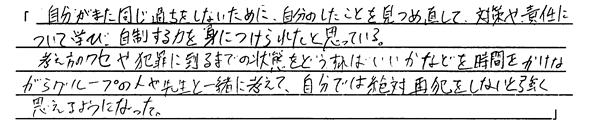 「自分がまた同じ過ちをしないために、自分のしたことを見つめ直して、対策や責任に
ついて学び、自制する力を身につけられたと思っている。
考え方のクセや犯罪に到るまでの状態をどうすればいいかなどを時間をかけな
がらグループの人や先生と一緒に考えて、自分では絶対再犯をしないと強く
思えるようになった。」